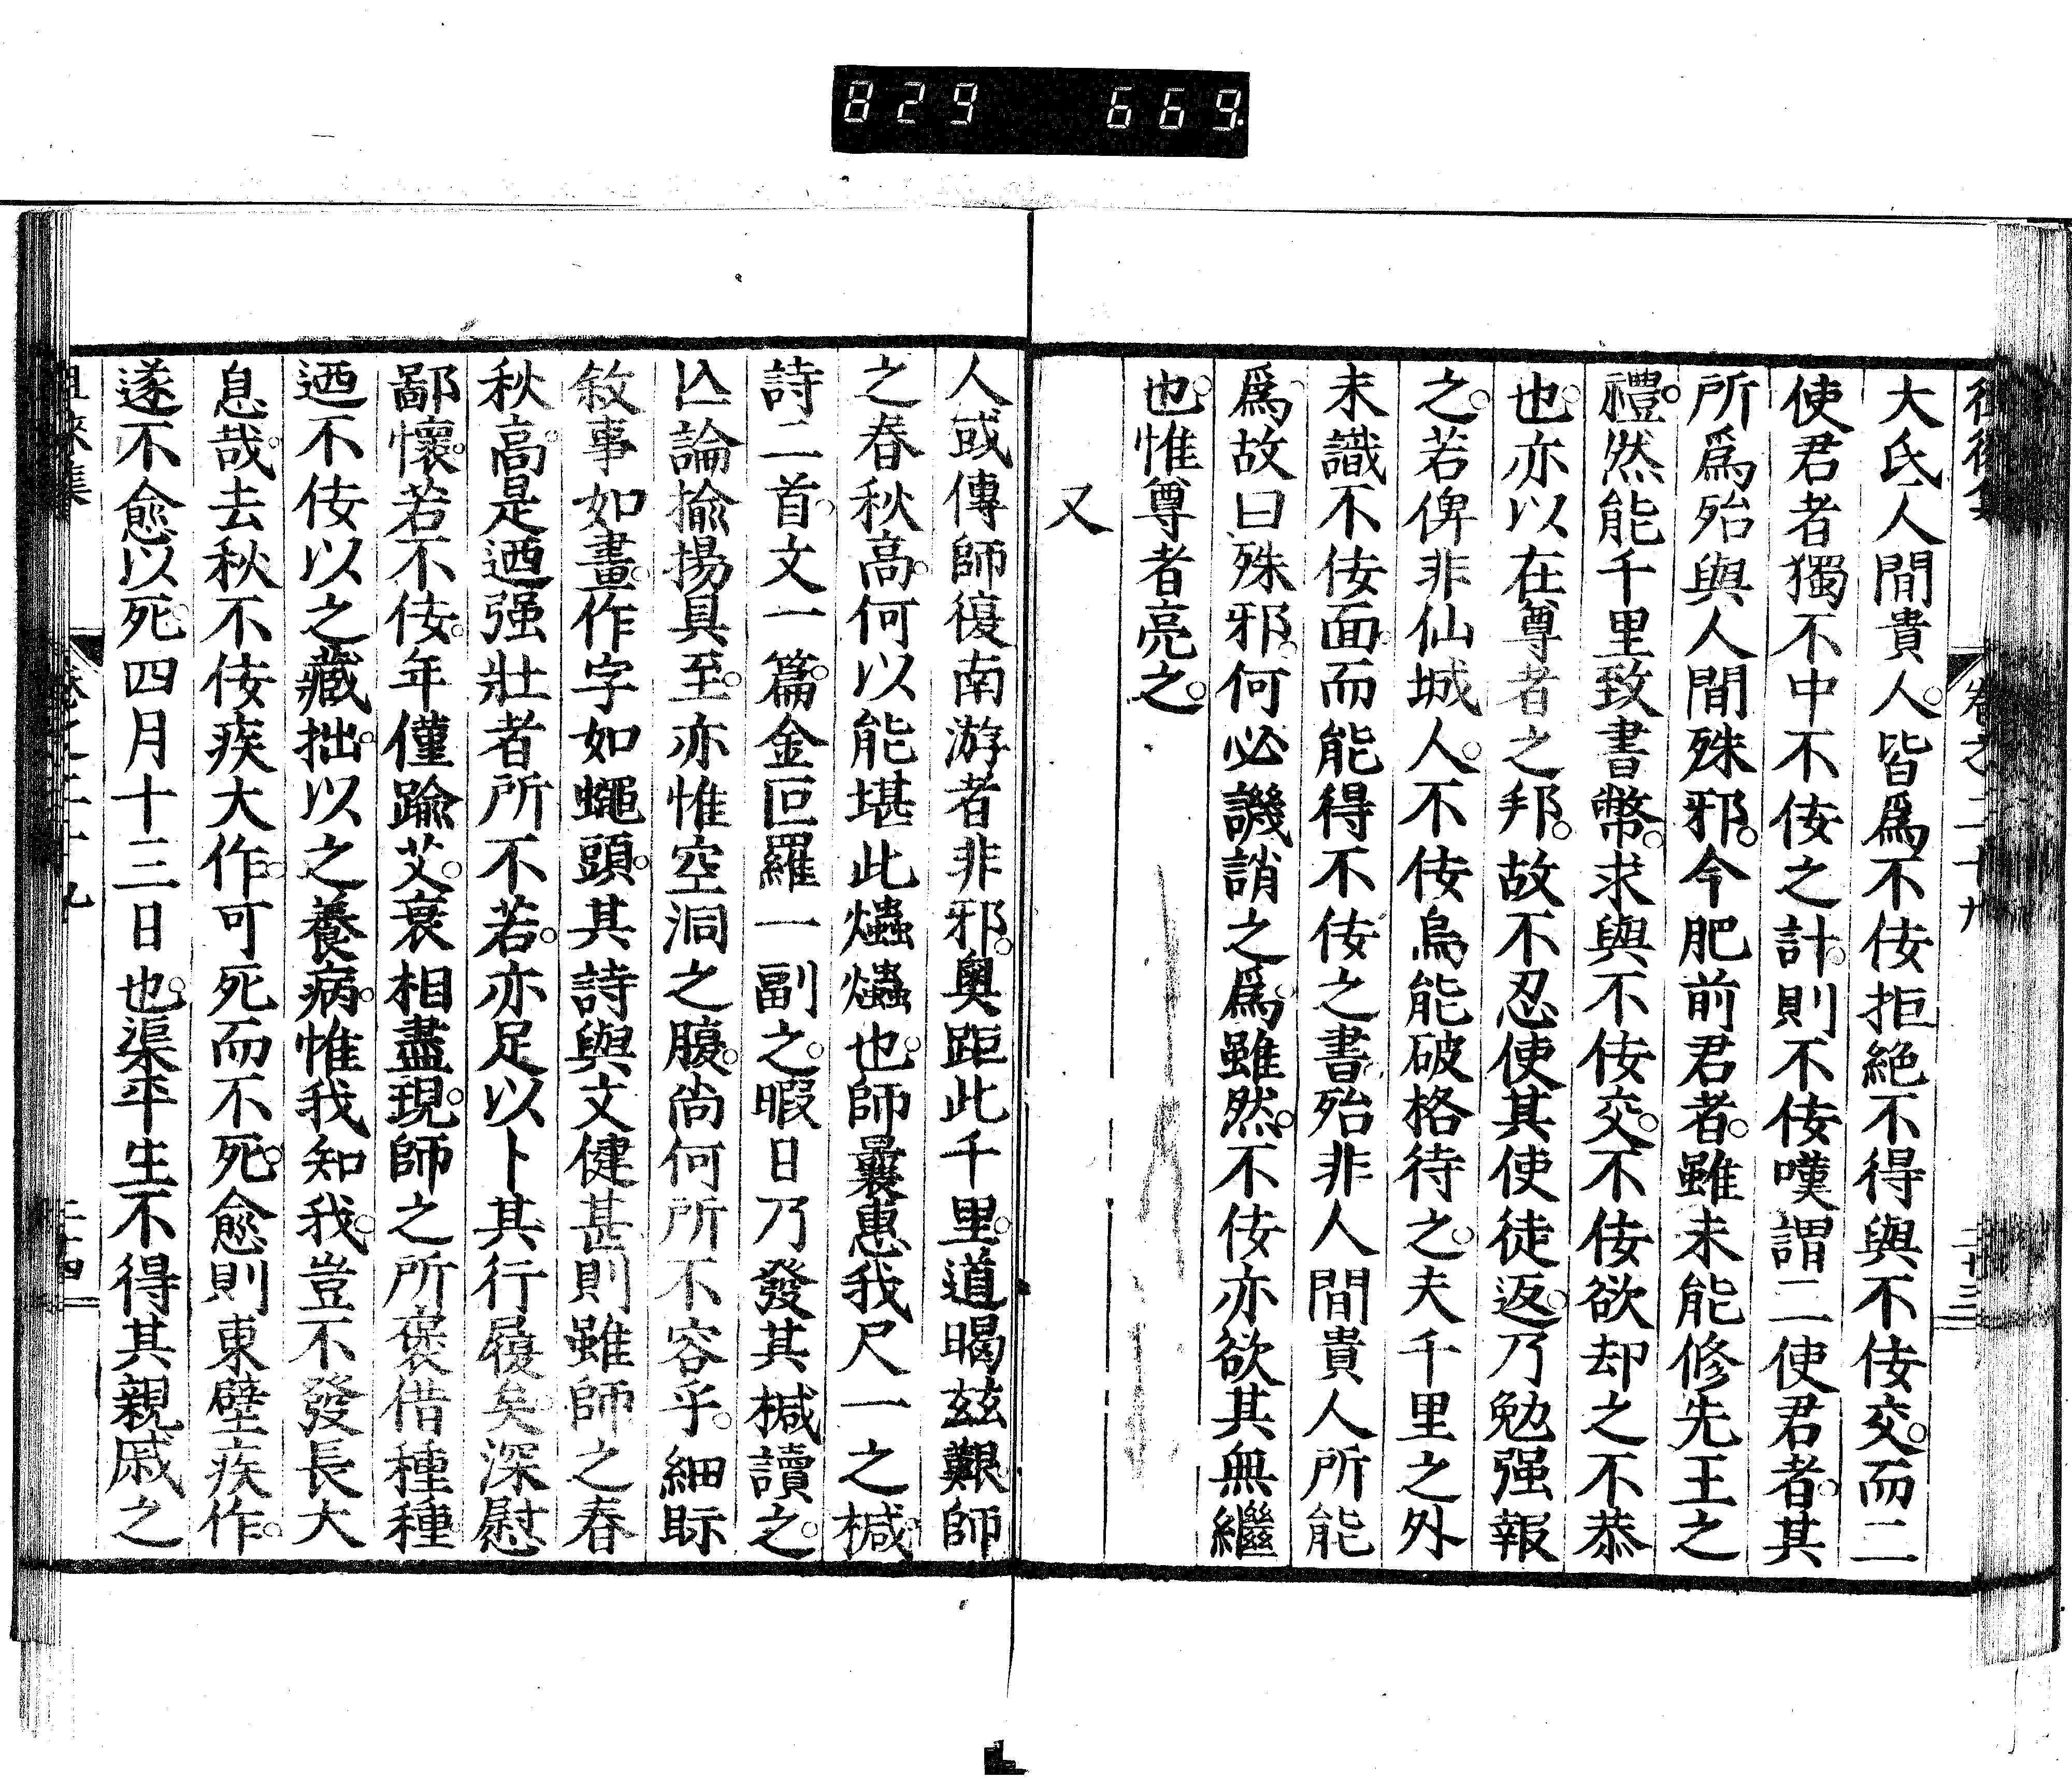 829 669
大氐人間貴人。皆爲不佞拒絕不得與不佞交。而二
使君者獨不中不佞之計。則不佞嘆謂二使君者。其
所爲殆與人間殊邪。今肥前君者。雖未能修先王之
禮。然能千里致書幣。求與不佞交。不佞欲却之不恭
也。亦以在尊者之邦。故不忍使其使徒返。乃勉强報
之。若俾非仙城人。不佞烏能破格待之。夫千里之外
未識不佞面。而能得不佞之書。殆非人間貴人所能
爲。故曰殊邪。何必譏誚之爲。雖然。不佞亦欲其無繼
也。惟尊者亮之。
又
人或傳師復南游者非邪。奧距此千里。道暍茲艱。師
之春秋高。何以能堪此爞爞也。師曩惠我尺一之椷。
詩二首。文一篇。金叵羅一副之。暇日乃發其椷讀之。
亾論揄揚具至。亦惟空洞之腹。尚何所不容乎。細眎
敘事如畫。作字如蠅頭。其詩與文健甚。則雖師之春
秋高。是迺强壯者所不若。亦足以卜其行履矣。深慰
鄙懷。若不佞。年僅踰艾。衰相盡現。師之所褒借種種。
迺不佞以之藏拙。以之養病。惟我知我。豈不發長大
息哉。去秋不佞疾大作。可死而不死。愈則東壁疾作。
遂不愈以死。四月十三日也。渠平生不得其親戚之
卷之二十九
二十三
二十四